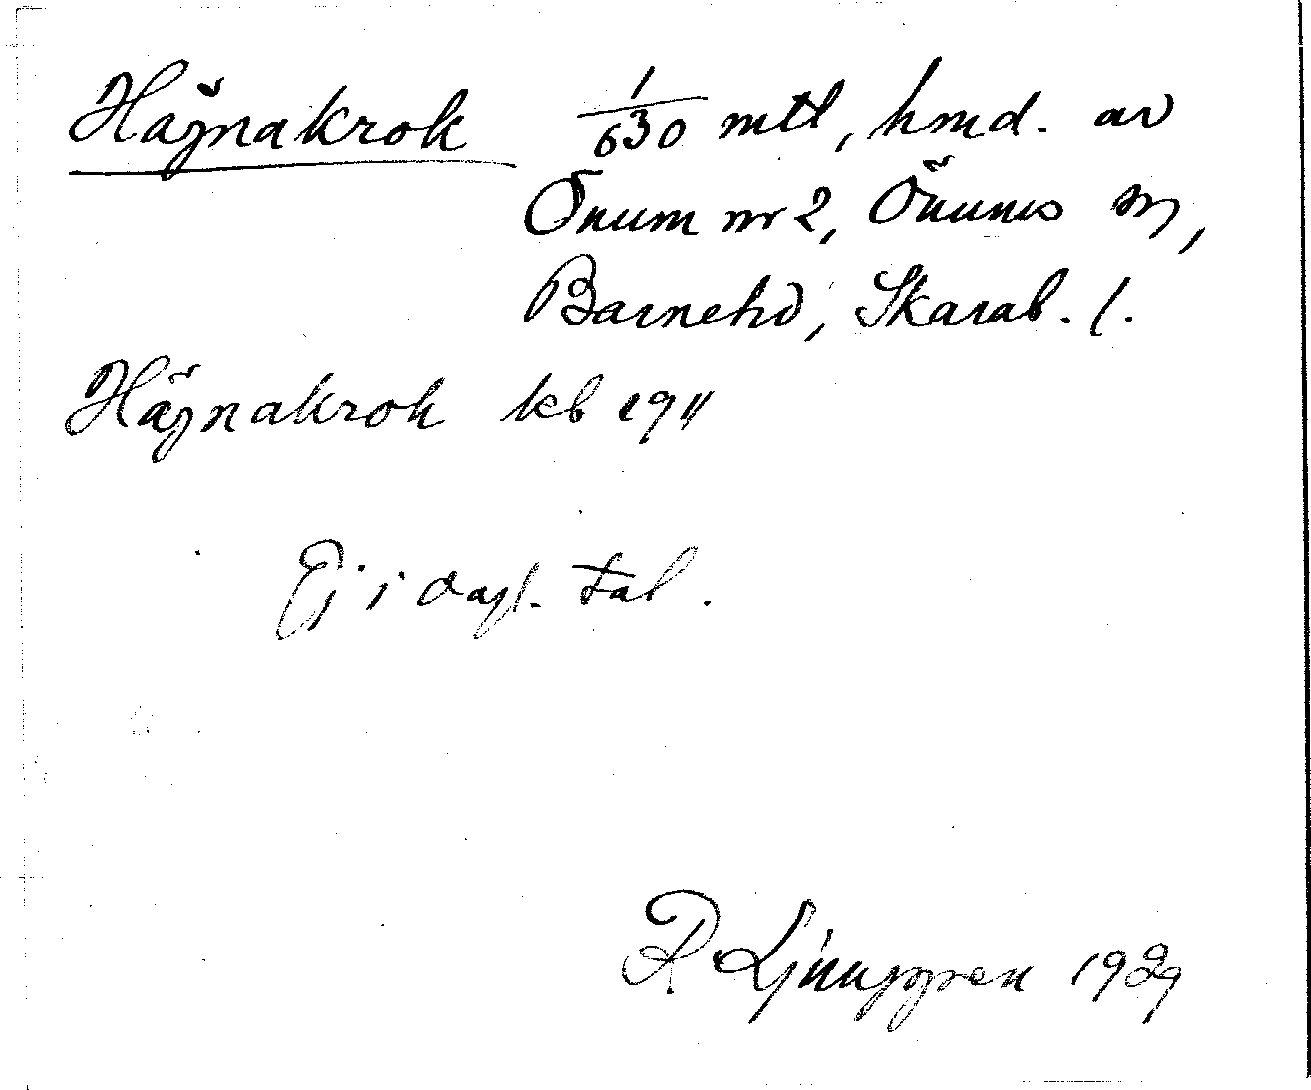 Häjnakrok 1/630 mtl, hmd. av
Önum nr 2, Önums sn,
Barnehd, Skarab. l.
Häjnakrok kb 1911
Ej i dagl. tal.
R Ljunggren 1929